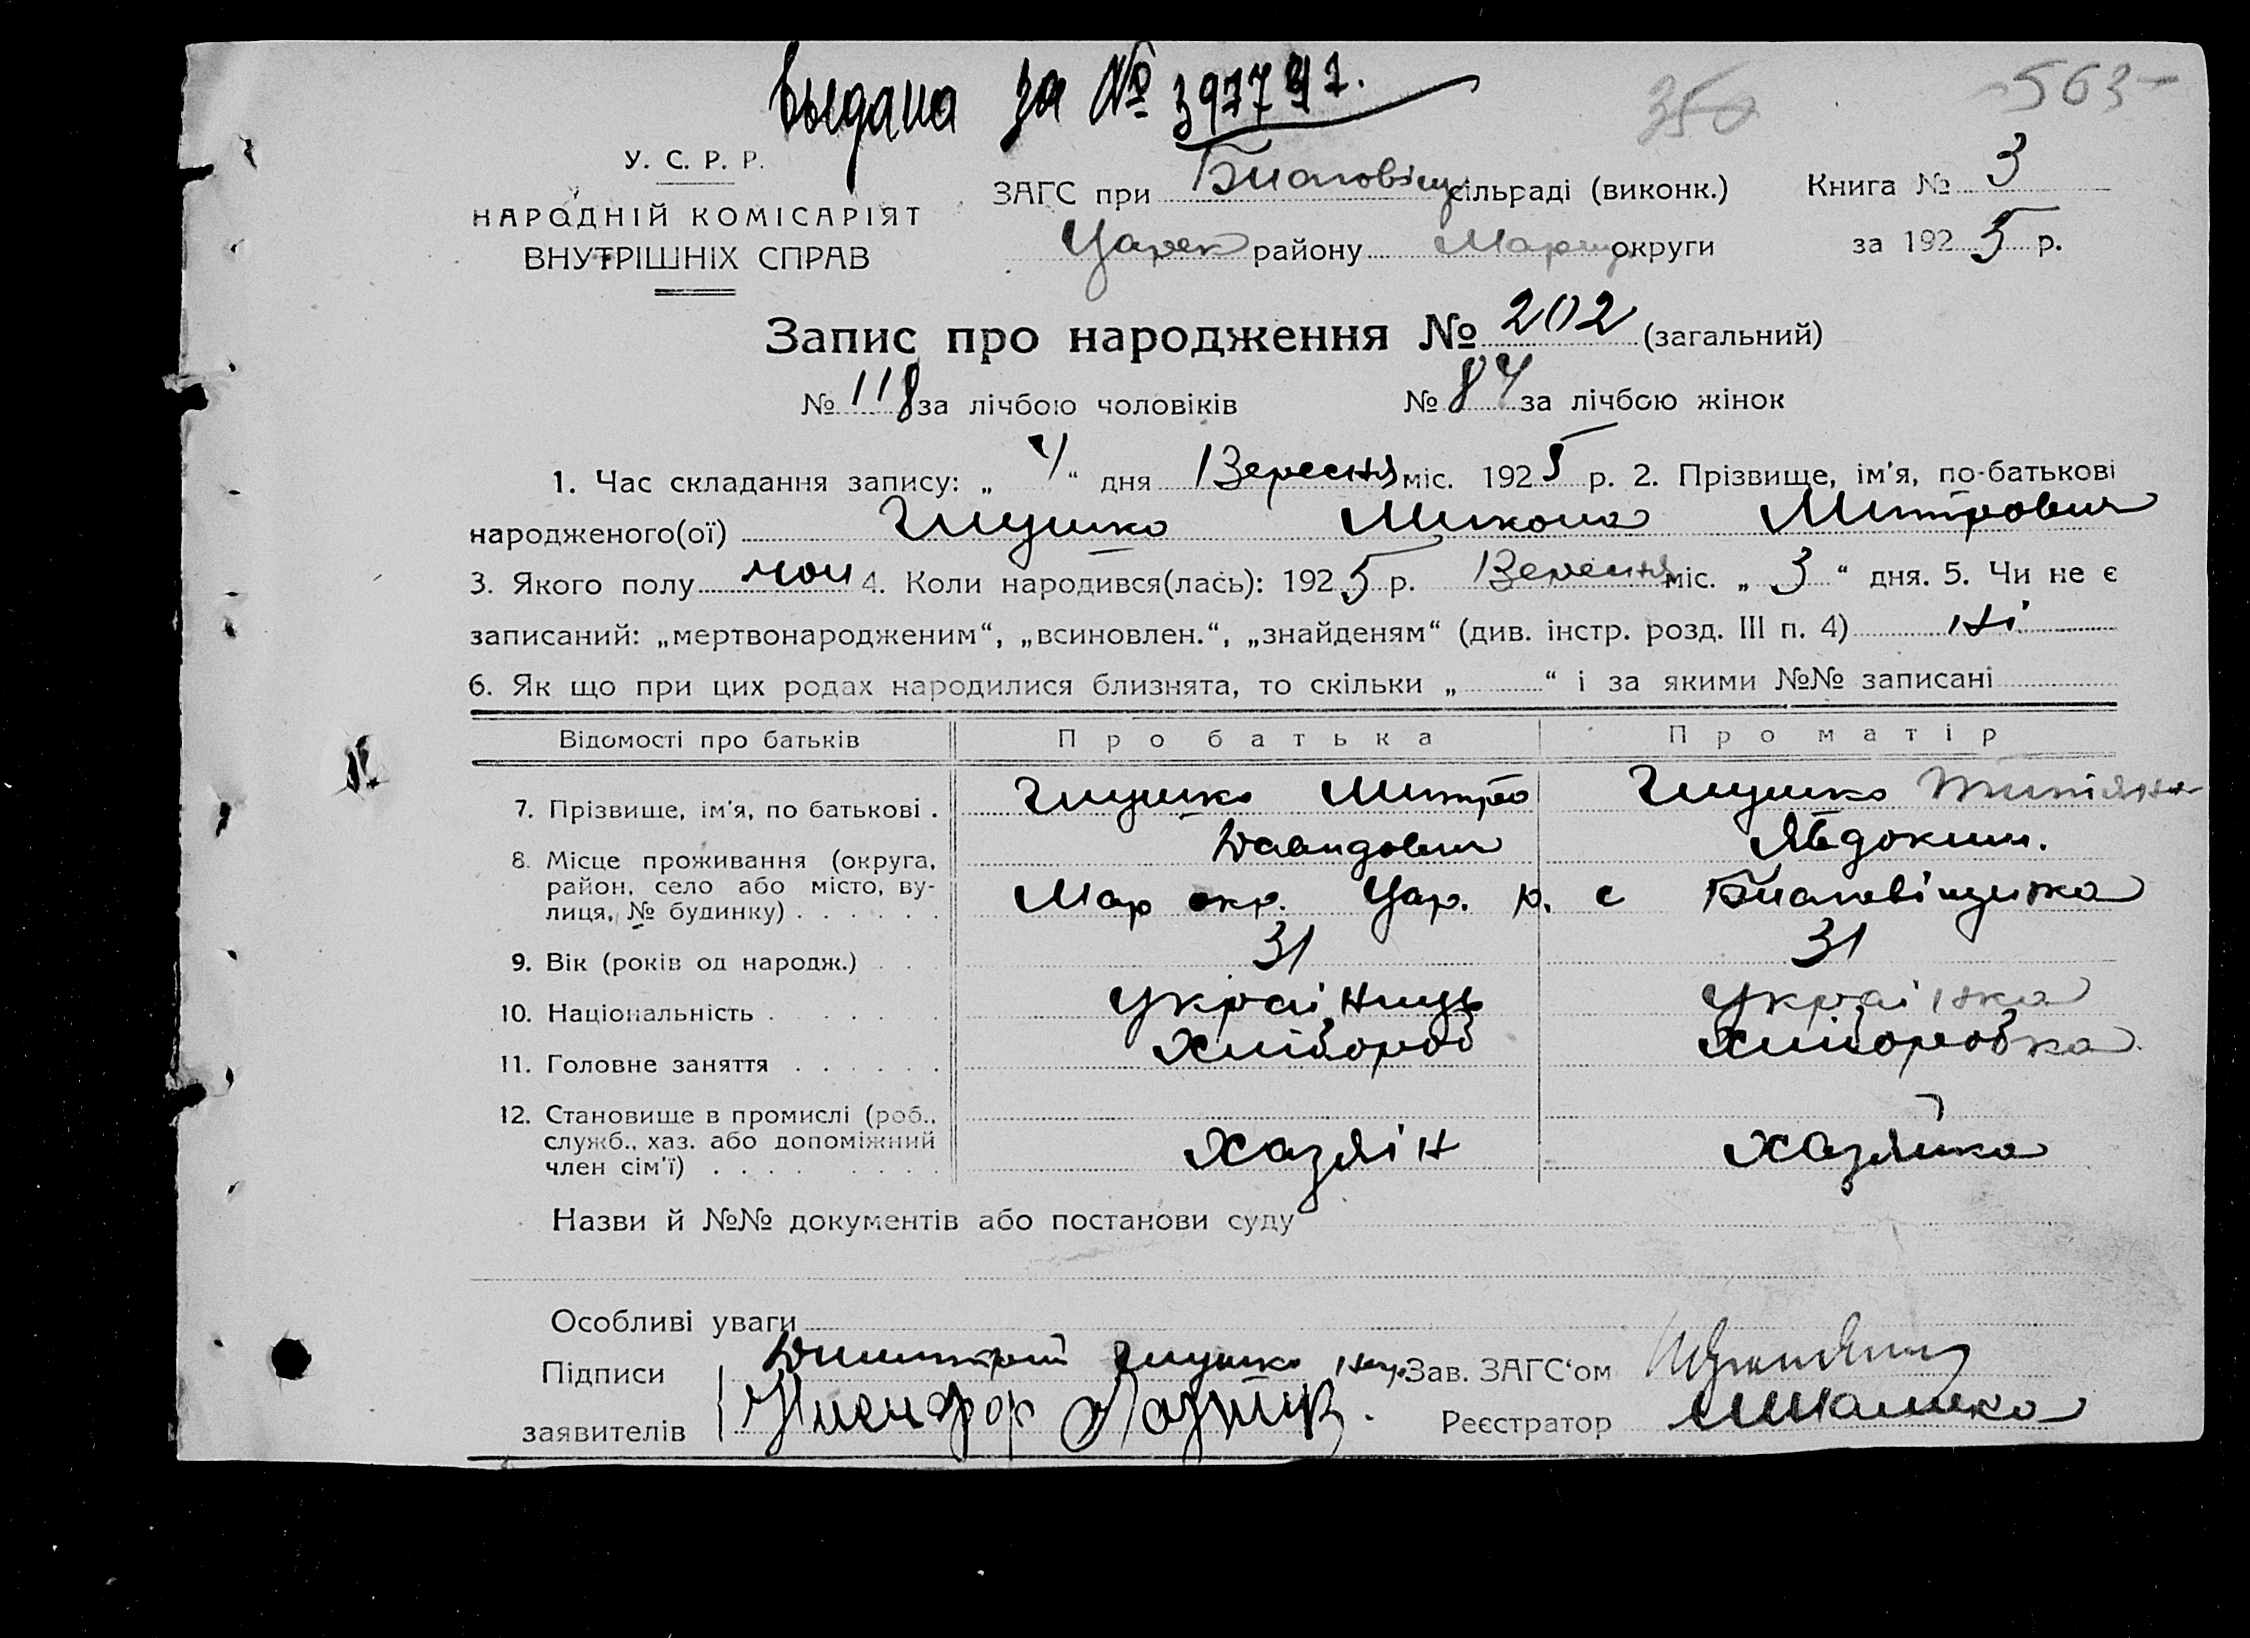 выдана за № 397797.
350 563
У. С. Р. Р.
НАРОДНІЙ КОМІСАРІЯТ
ВНУТРІШНІХ СПРАВ
ЗАГС при Благовіщ сільраді (виконк.) Книга № 3
Царек району Маріуп округи за 1925 р.
Запис про народження № 202 (загальний)
№ 118 за лічбою чоловіків № 84 за лічбою жінок
1. Час складання запису: „ 4 “ дня Вересня міс. 1925 р. 2. Прізвище, ім'я, по-батькові
народженого(ої) Глушко Микола Митрович
3. Якого полу чол 4. Коли народився(лась): 1925 р. Вересня міс. „ 3 “ дня. 5. Чи не є
записаний: „мертвонародженим“, „всиновлен.“, „знайденям“ (див. інстр. розд. III п. 4) ні
6. Як що при цих родах народилися близнята, то скільки „ “ і за якими №№ записані
Відомості про батьків Про батька Про матір
7. Прізвище, ім'я, по батькові . Глушко Митро Глушко
Давидович Явдоким.
8. Місце проживання (округа,
район, село або місто, ву-
лиця, № будинку) . . . . . . Мар окр. Цар. р. с Благовіщенка
9. Вік (років од народж.) . . . 31 31
10. Національність . . . . . . Українець Українка
11. Головне заняття . . . . . . Хлібороб Хліборобка
12. Становище в промислі (роб.,
служб., хаз. або допоміжний
член сім'ї) . . . . . . . . Хазяін Хазяйка
Назви й №№ документів або постанови суду
Особливі уваги
Підписи Дмитрий Глушко Зав. ЗАГС'ом
заявителів Реєстратор